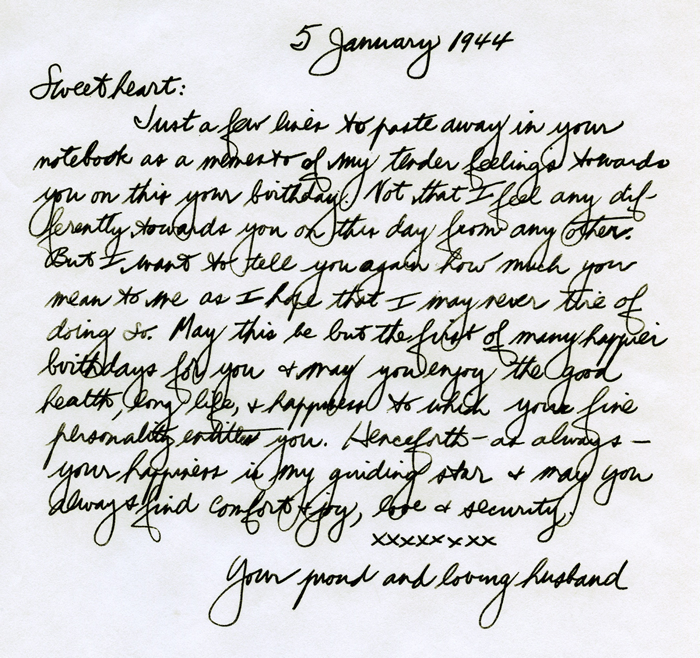 5 January 1944
Sweetheart:
Just a few lines to paste away in your
notebook as a memento of my tender feelings towards
you on this your birthday. Not that I feel any dif-
ferently towards you on this day from any other.
But I want to tell you again how much you
mean to me as I hope that I may never tire of
doing so. May this be but the first of many happier
birthdays for you & may you enjoy the good
health, long life, & happiness to which your fine
personality entitles you. Henceforth - as always -
your happiness is my guiding star & may you
always find comfort & joy, love & security.
xxxxxxxx
Your proud and loving husband